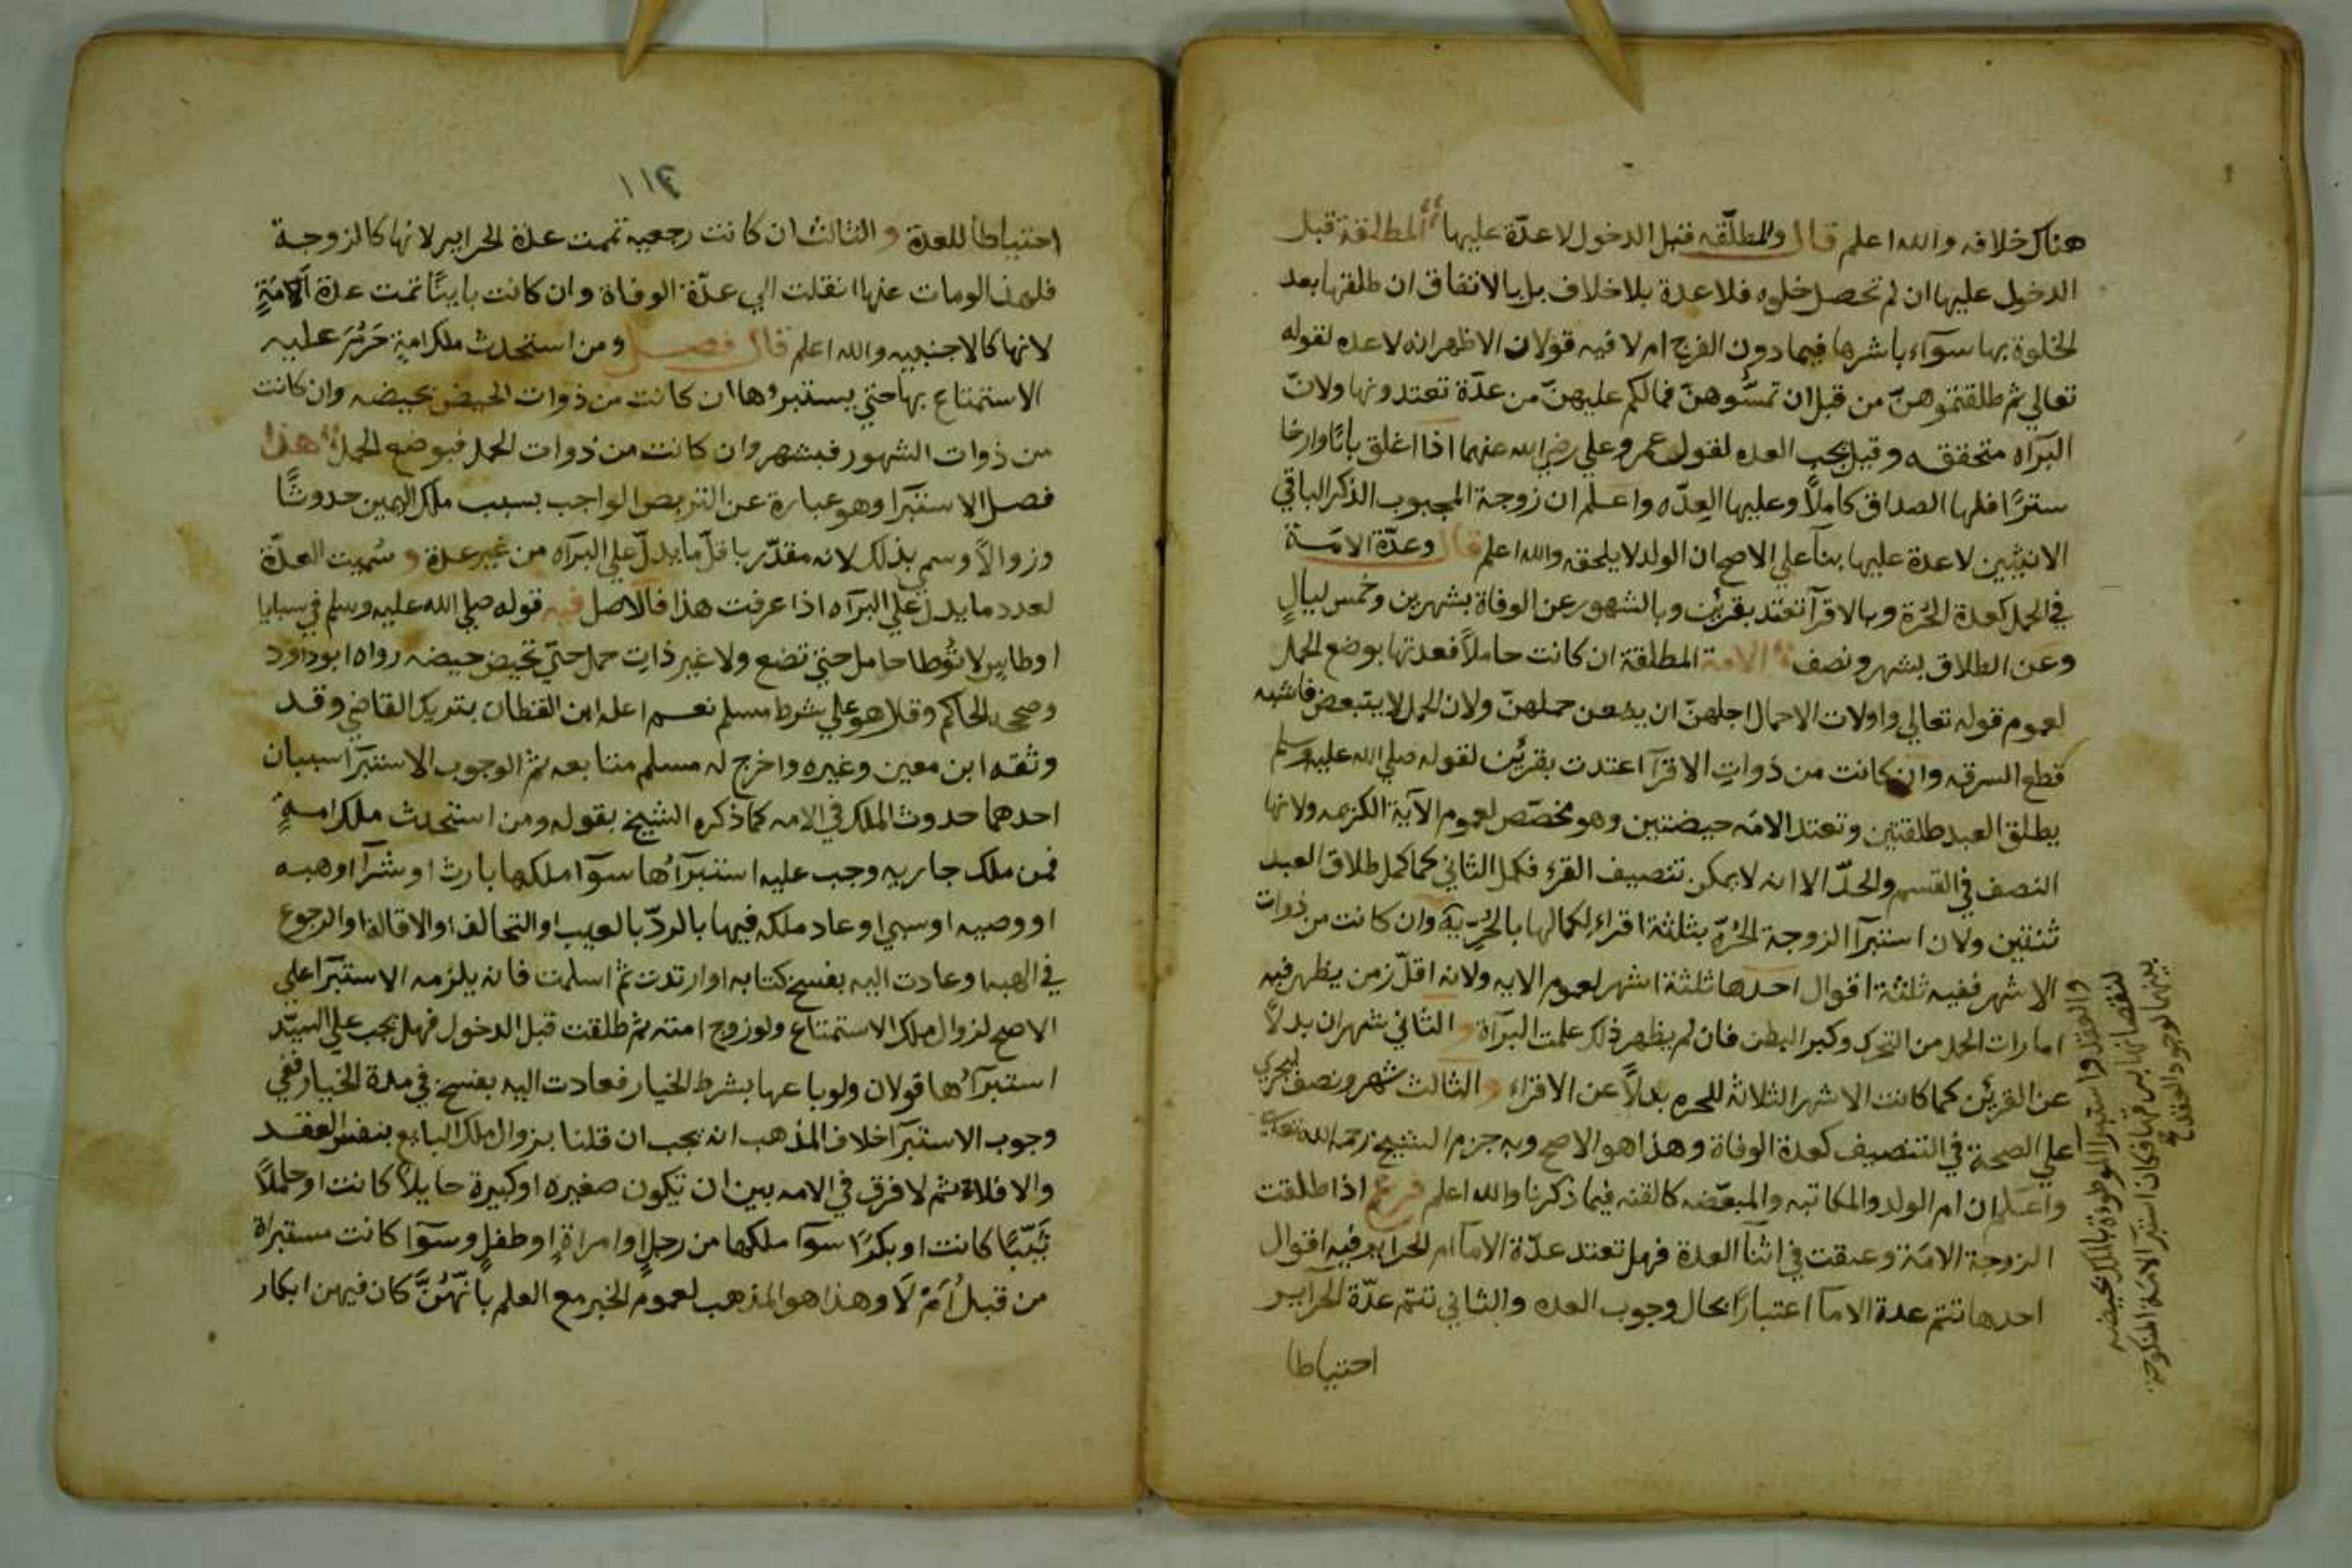 هناك خلافه والله اعلم قال والمطلّقه قبل الدخول لاعدّة عليها المطلقة قبل
الدخول عليها ان لم تحصل خلوه فلاعدة بلاخلاف بل بالاتفاق ان طلقها بعد
الخلوة بها سوآء باشرها فيما دون الفرج ام لا فيه قولان الاظهر انه لاعده لقوله
تعالي ثم طلقتموهنّ من قبل ان تمسّوهنّ فمالكم عليهنّ من عدّة تعتدونها ولانّ
البرآه متحققه وقيل يجب العده لقول عمر وعلي رضي الله عنهما اذا اغلق بابًا وارخا
سترًا فلها الصداق كاملاً وعليها العِدّه واعلم ان زوجة المجبوب الذكر الباقي
الانثيين لاعدة عليها بنآ علي الاصح ان الولد لايلحقه والله اعلم قال وعدّة الامَة
في الحمل كعدة الحُرة وبالاقرآ تعتد بقرئين وبالشهور عن الوفاة بشهرين وخمس ليالٍ
وعن الطلاق بشهر ونصف الامة المطلقة ان كانت حاملاً فعدتها بوضع الحمل
لعموم قوله تعالي واولات الاحمال اجلهنّ ان يضعن حملهنّ ولان الحمل لايتبعض فاشبه
قطع السرقه وان كانت من ذواتِ الاقرآ اعتدت بقرئين لقوله صلي الله عليه وسلم
يطلق العبد طلقتين وتعتد الامَه حيضتين وهو مخصّص لعموم الآية الكريمه ولانها
النصف في القسم والحدّ الا انه لايمكن تنصيف القرء فكمل الثاني كما كمل طلاق العبد
ثنتين ولان استبرآ الزوجة الحُرّة بثلثة اقراء لكمالها بالحُرّية وان كانت من ذوات
الاشهر ففيه ثلثة اقوال احدها ثلثة اشهر لعموم الايه ولانه اقلّ زمن يظهر فيه
امارات الحمل من التحرك وكبر البطن فان لم يظهر ذلك علمت البرآة و الثاني شهران بدلاً
عن القرئين كما كانت الاشهر الثلاثة للحره بدلاً عن الاقراء و الثالث شهر ونصف ليجري
علي الصحة في التنصيف كعدة الوفاة وهذا هو الاصح وبه جزم الشيخ رحمه الله تعالي
واعلم ان ام الولد والمكاتبه والمبعّضه كالقنه فيما ذكرنا والله اعلم فرع اذا طلقت
الزوجة الامَة وعتقت في اثنآ العدة فهل تعتد عدّة الامآ ام الحراير فيه اقوال
احدها تتم عدة الامآ اعتبارًا بحال وجوب العده والثاني تتم عدّة الحراير
احتياطا
والعقد واستبرا الموطوءة بالملك بحيضه
لنقصانها بين قها فكان استبرآ الامة المنكوحة
بينهما لوجود العقد
٣١١
احتياطاً للعدة و الثالث ان كانت رجعيه تممت عدة الحراير لانها كالزوجة
فلهذا لومات عنها انتقلت الي عدّة الوفاة وان كانت باينًا تمت عدة الامَةِ
لانها كالاجنبيه والله اعلم قال فصل ومن استحدث ملك امةٍ حَرُمَ عليه
الاستمتاع بها حتي يستبروها ان كانت من ذوات الحيض بحيضه وان كانت
من ذوات الشهور فبشهر وان كانت من ذوات الحمل فبوضع الحمل هذا
فصل الاستبرا وهو عبارة عن التربص الواجب بسبب ملك اليمين حدوثًا
وزوالاً وسمي بذلك لانه مقدّر باقلّ مايدلّ علي البرآه من غير عدة و سُميت العدّة
لعدد مايدل علي البرآه اذا عرفت هذا فالاصل فيه قوله صلي الله عليه وسلم في سبايا
اوطاس لاتُوطا حامل حتي تضع ولاغير ذاتِ حمل حتّي تحيض حيضه رواه ابوداود
وصححه الحاكم وقال هو علي شرط مسلم نعم اعله ابن القطان بشريك القاضي وقد
وثقه ابن معين وغيره واخرج له مسلم متابعه ثم الوجوب الاستبرآ سببان
احدهما حدوث الملك في الامه كما ذكره الشيخ بقوله ومن استحدث ملك امةٍ
فمن ملك جاريه وجب عليه استبرآؤها سوآ ملكها بارث او شرآ او هبه
او وصيه اوسبي او عاد ملكه فيها بالردّ بالعيب او التحالف او الاقالة او الرجوع
في الهبه او عادت اليه بفسخ كتابه او ارتدت ثم اسلمت فانه يلزمه الاستبرآ علي
الاصح لزوال ملك الاستمتاع ولو زوج امته ثم طلقت قبل الدخول فهل يجب علي السيّد
استبرآؤها قولان ولو باعها بشرط الخيار فعادت اليه بفسخ في مدة الخيار ففي
وجوب الاستبرآ خلاف المذهب انه يجب ان قلنا بزوال ملك البايع بنفس العقد
والا فلا ثم لافرق في الامه بين ان تكون صغيره او كبيرة حايلاً كانت او حاملاً
ثَيّبًا كانت او بكرًا سوآ ملكها من رجلٍ او امراةٍ او طفلٍ وسوآ كانت مستبراة
من قبل اَمْ لَا وهذا هو المذهب لعموم الخبر مع العلم بانّهُنَّ كان فيهن ابكار